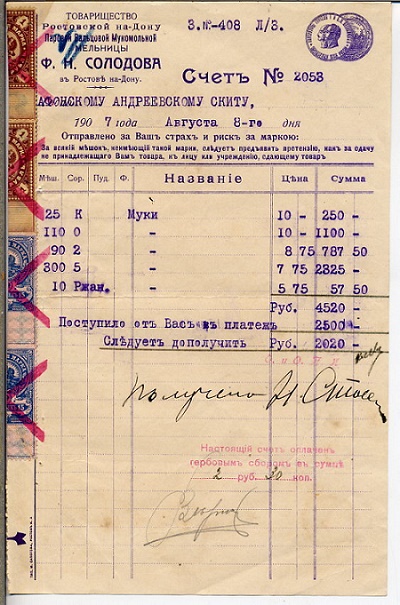 ТОВАРИЩЕСТВО
Ростовской на-Дону
Паровой Вальцовой Мукомольной
МЕЛЬНИЦЫ
Ф. Н. СОЛОДОВА
въ Ростовѣ на-Дону.
З.№-408 Л/З.
Счетъ № 2053
АФОНСКОМУ АНДРЕЕВСКОМУ СКИТУ,
1907 года Августа 8-го дня
Отправлено за Вашъ страхъ и рискъ за маркою:
За всякій мѣшокъ, неимѣющій такой марки, слѣдуетъ предъявить претензію, какъ за сдачу
не принадлежащаго Вамъ товара, къ лицу или учрежденію, сдающему товаръ
Мѣш. Сор. Пуд. Ф. Названіе Цѣна Сумма
25 К Муки 10 – 250 –
110 0 – 10 – 1100 –
90 2 – 8 75 787 50
300 5 – 7 75 2325 –
10 Ржан. – 5 75 57 50
Руб. 4520 –
Поступило отъ Васъ въ платежъ 2500 –
Слѣдуетъ дополучить Руб. 2020 –
получено
Настоящій счетъ оплаченъ
гербовымъ сборомъ въ суммѣ
2 руб. 30 коп.